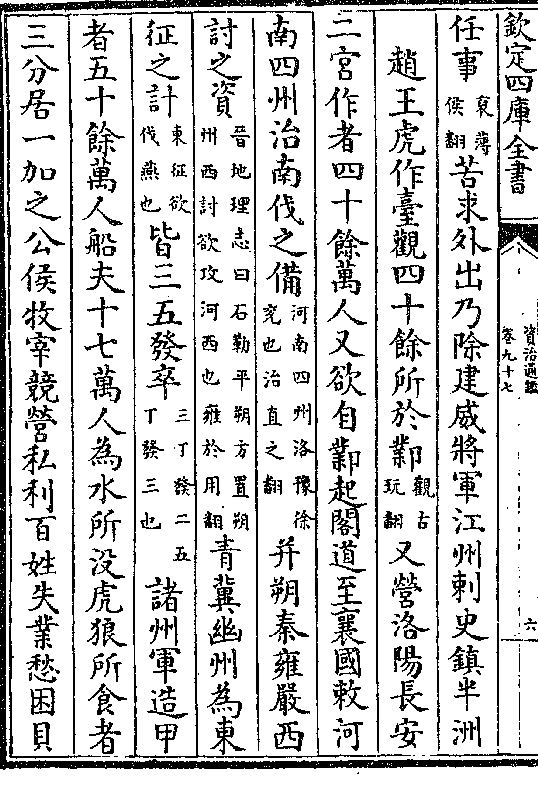 欽定四庫全書
資治通鑑
卷九十七
六
任事裒薄侯翻苦求外出乃除建威將軍江州刺史鎮半洲
趙王虎作臺觀四十餘所於鄴觀古玩翻又營洛陽長安
二宮作者四十餘萬人又欲自鄴起閣道至襄國敕河
南四州治南伐之備河南四州洛豫徐兗也治直之翻并朔秦雍嚴西
討之資晉地理志曰石勒平朔方置朔州西討欲攻河西也雍於用翻青冀幽州為東
征之計東征欲伐燕也皆三五發卒三丁發二五丁發三也諸州軍造甲
者五十餘萬人船夫十七萬人為水所沒虎狼所食者
三分居一加之公侯牧宰競營私利百姓失業愁困貝